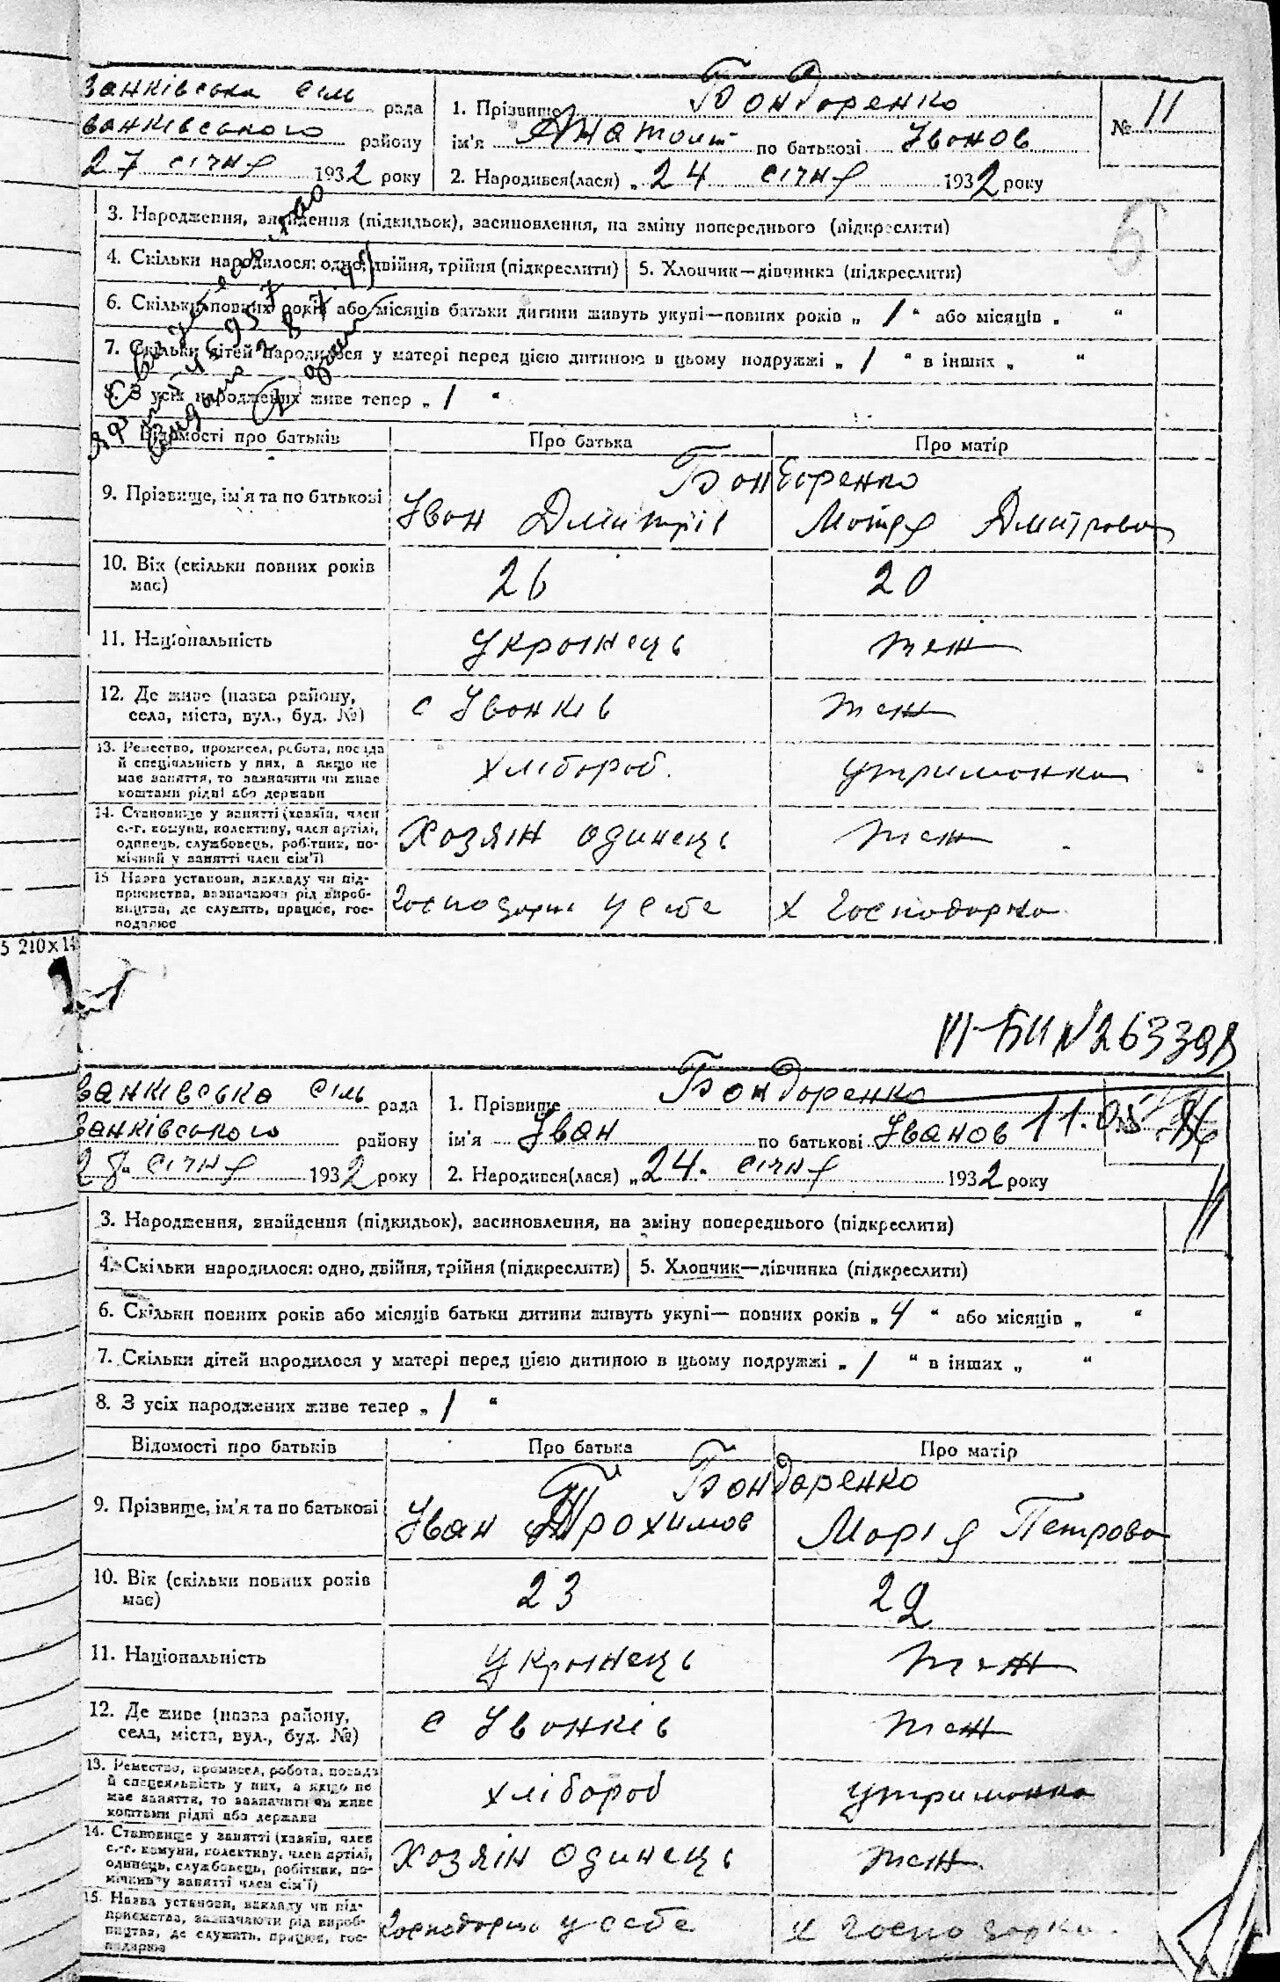 ванківська сіль рада
ванківського району
27 січня 1932 року
1. Прізвище Бондаренко
ім'я Анатолій по батькові Іванов
2. Народився(лася) „24 січня 1932 року
№ 11
6
3. Народження, знайдення (підкидьок), засиновлення, на зміну попереднього (підкреслити)
4. Скільки народилося: одно, двійня, трійня (підкреслити) 5. Хлопчик—дівчинка (підкреслити)
6. Скільки повних років або місяців батьки дитини живуть укупі—повних років „ 1 “ або місяців „ “
7. Скільки дітей народилося у матері перед цією дитиною в цьому подружжі „ 1 “ в інших „ “
8. З усіх народжених живе тепер „ 1 “
Відомості про батьків Про батька Про матір
Бондаренко
9. Прізвище, ім'я та по батькові Іван Дмитрів Мотря Дмитрова
10. Вік (скільки повних років має) 26 20
11. Національність Українець теж
12. Де живе (назва району, с Іванків теж
села, міста, вул., буд. №)
13. Ремество, промисел, робота, посада
й спеціяльність у них, а якщо не хлібороб. утриманка
має заняття, то зазначити чи живе
коштами рідні або держави
14. Становище у занятті (хазяїн, член
с.-г. комуни, колективу, член артілі, Хозяїн одинець теж
одинець, службовець, робітник, по-
мічний у занятті член сім'ї)
15 Назва установи, закладу чи під-
приємства, зазначаючи рід вироб- Господарює у себе х Господарка
ництва, де служить, працює, гос-
подарює
5 210х14
III-БИ №263398
ванківська сіль рада
ванківського району
28 січня 1932 року
1. Прізвище Бондаренко
ім'я Іван по батькові Іванов 11.05.
2. Народився(лася) „24. січня 1932 року
3. Народження, знайдення (підкидьок), засиновлення, на зміну попереднього (підкреслити)
4. Скільки народилося: одно, двійня, трійня (підкреслити) 5. Хлопчик—дівчинка (підкреслити)
6. Скільки повних років або місяців батьки дитини живуть укупі— повних років „ 4 “ або місяців „ “
7. Скільки дітей народилося у матері перед цією дитиною в цьому подружжі „ 1 “ в інших „ “
8. З усіх народжених живе тепер „ 1 “
Відомості про батьків Про батька Про матір
Бондаренко
9. Прізвище, ім'я та по батькові Іван Трохимов Марія Петрова
10. Вік (скільки повних років має) 23 22
11. Національність Українець теж
12. Де живе (назва району, с Іванків теж
села, міста, вул., буд. №)
13. Ремество, промисел, робота, посада
й спецеяльність у них, а якщо не хлібороб утриманка
має заняття, то зазначити чи живе
коштами рідні або держави
14. Становище у занятті (хазяїн, член
с.-г. комуни, колективу, член артілі, Хозяїн одинець теж
одинець, службовець, робітник, по-
мічний у занятті член сім'ї)
15. Назва установи, закладу чи під-
приємства, зазначаючи рід вироб- Господарює у себе х Господарка
ництва, де служить, працює, гос-
подарює